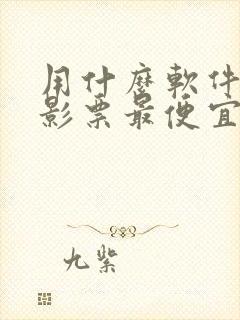 用什麼軟件
影票最便宜
九紫